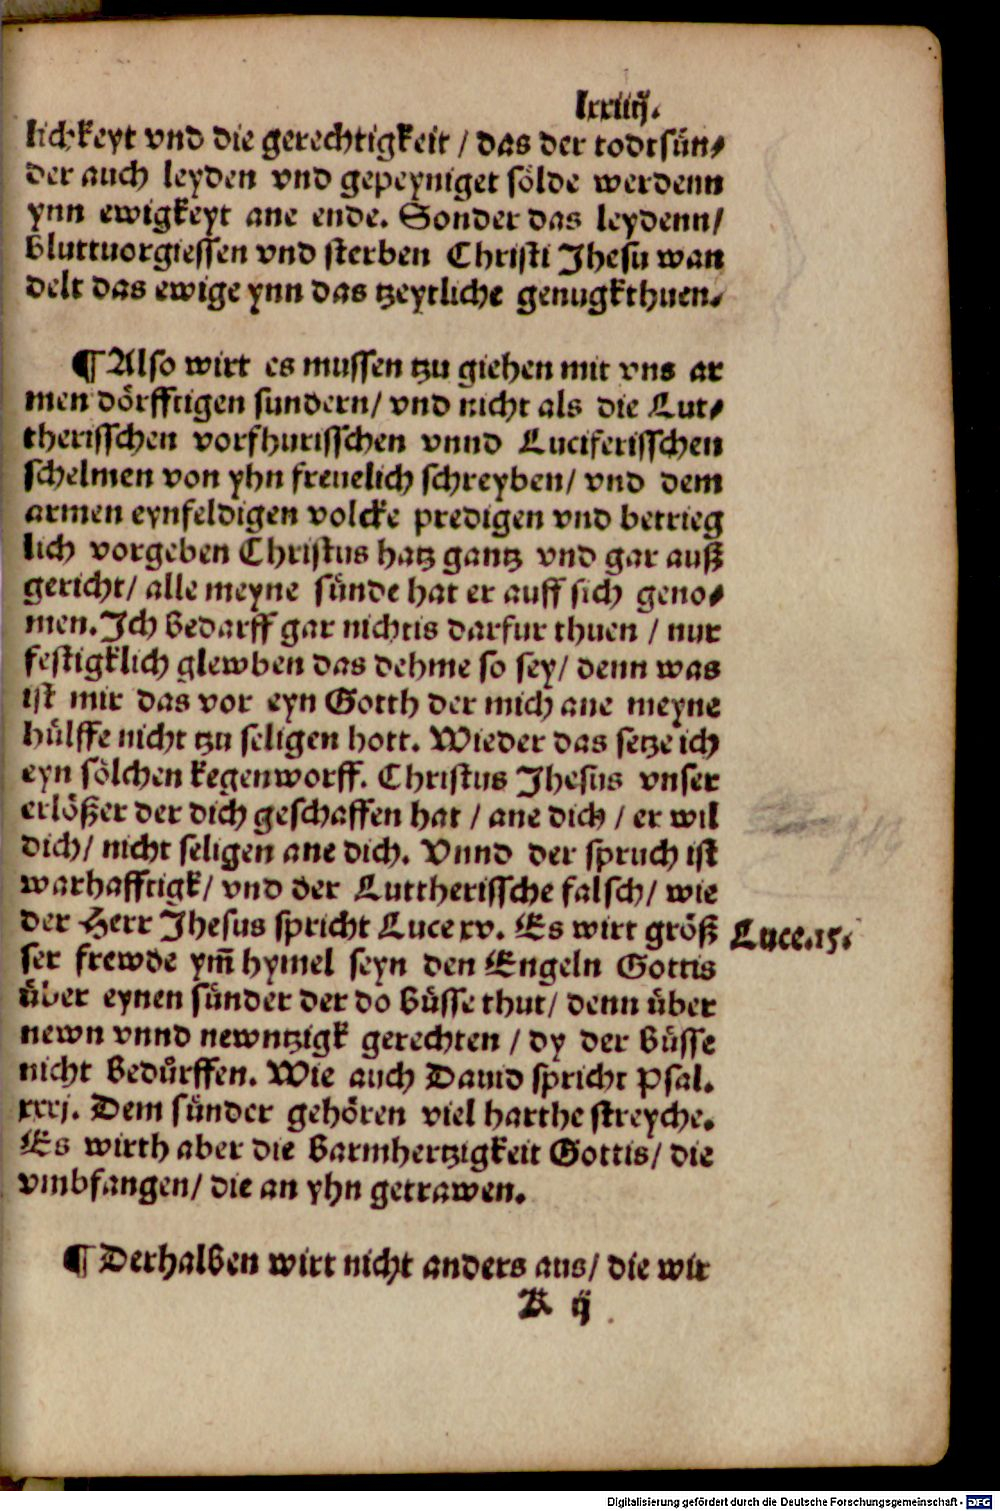 lxxiiij.
lichkeyt vnd die gerechtigkeit / das der todtsün⸗
der auch leyden vnd gepeyniget sölde werdenn
ynn ewigkeyt ane ende. Sonder das leydenn/
bluttuorgiessen vnd sterben Christi Jhesu wan
delt das ewige ynn das tzeytliche genugkthuen.
¶ Also wirt es mussen tzu giehen mit vns ar
men dörfftigen sundern/ vnd nicht als die Lut⸗
therisschen vorfhurisschen vnnd Luciferisschen
schelmen von yhn freuelich schreyben/ vnd dem
armen eynfeldigen volcke predigen vnd betrieg
lich vorgeben Christus hatz gantz vnd gar auß
gericht/ alle meyne sünde hat er auff sich geno⸗
men. Ich bedarff gar nichtis darfur thuen / nur
festigklich glewben das dehme so sey/ denn was
ist mir das vor eyn Gotth der mich ane meyne
hülffe nicht tzu seligen hott. Wieder das setze ich
eyn sölchen kegenworff. Christus Jhesus vnser
erlößer der dich geschaffen hat / ane dich / er wil
dich/ nicht seligen ane dich. Vnnd der spruch ist
warhafftigk/ vnd der Luttherissche falsch/ wie
der Herr Jhesus spricht Luce xv. Es wirt größ
ser frewde ym̄ hymel seyn den Engeln Gottis
über eynen sünder der do büsse thut/ denn über
newn vnnd newntzigk gerechten / dy der büsse
nicht bedürffen. Wie auch Dauid spricht Psal.
xxxj. Dem sünder gehören viel harthe streyche.
Es wirth aber die barmhertzigkeit Gottis/ die
vmbfangen/ die an yhn getrawen.
Luce.15.
¶ Derhalben wirt nicht anders aus/ die wir
K ij
Digitalisierung gefördert durch die Deutsche Forschungsgemeinschaft - DFG